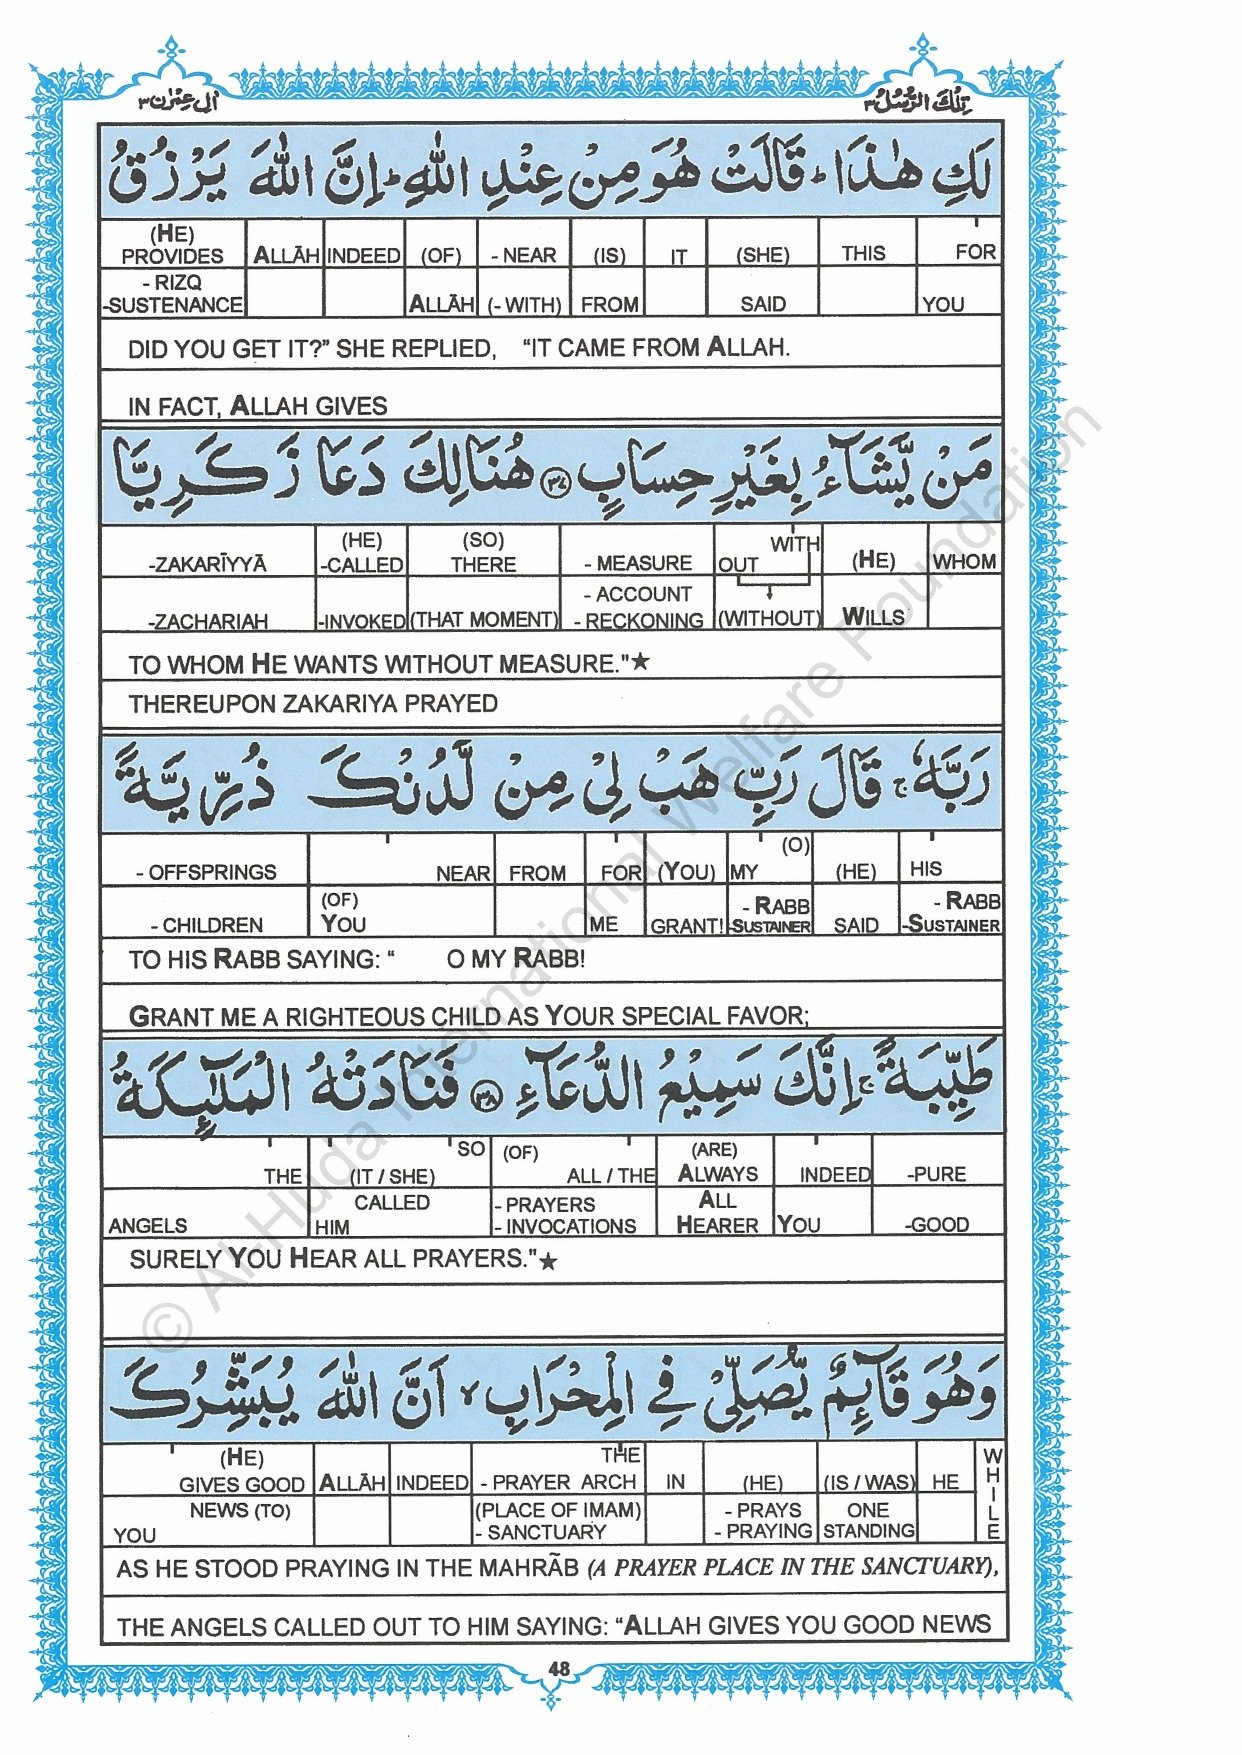 اٰل عِمْرٰن ٣
تِلْكَ الرُّسُلُ ٣
لَكِ هٰذَا ؕ قَالَتْ هُوَ مِنْ عِنْدِ اللّٰهِ ؕ اِنَّ اللّٰهَ يَرْزُقُ
(HE) PROVIDES ALLĀH INDEED (OF) - NEAR (IS) IT (SHE) THIS FOR
- RIZQ -SUSTENANCE ALLĀH (- WITH) FROM SAID YOU
DID YOU GET IT?” SHE REPLIED, “IT CAME FROM ALLAH.
IN FACT, ALLAH GIVES
مَنْ يَّشَآءُ بِغَيْرِ حِسَابٍ ﴿٣٧﴾ هُنَالِكَ دَعَا زَكَرِيَّا
-ZAKARĪYYĀ (HE) -CALLED (SO) THERE - MEASURE WITH OUT (HE) WHOM
-ZACHARIAH -INVOKED (THAT MOMENT) - ACCOUNT - RECKONING (WITHOUT) WILLS
TO WHOM HE WANTS WITHOUT MEASURE."★
THEREUPON ZAKARIYA PRAYED
رَبَّهٗ ۚ قَالَ رَبِّ هَبْ لِيْ مِنْ لَّدُنْكَ ذُرِّيَّةً
- OFFSPRINGS NEAR FROM FOR (YOU) MY (O) (HE) HIS
- CHILDREN (OF) YOU ME GRANT! - RABB -SUSTAINER SAID - RABB -SUSTAINER
TO HIS RABB SAYING: “ O MY RABB!
GRANT ME A RIGHTEOUS CHILD AS YOUR SPECIAL FAVOR;
طَيِّبَةً ۚ اِنَّكَ سَمِيْعُ الدُّعَآءِ ﴿٣٨﴾ فَنَادَتْهُ الْمَلٰٓئِكَةُ
THE (IT / SHE) SO (OF) ALL / THE (ARE) ALWAYS INDEED -PURE
ANGELS CALLED HIM - PRAYERS - INVOCATIONS ALL HEARER YOU -GOOD
SURELY YOU HEAR ALL PRAYERS."★
وَهُوَ قَآئِمٌ يُّصَلِّيْ فِي الْمِحْرَابِ ۙ اَنَّ اللّٰهَ يُبَشِّرُكَ
(HE) GIVES GOOD ALLĀH INDEED THE - PRAYER ARCH IN (HE) (IS / WAS) HE WHILE
YOU NEWS (TO) (PLACE OF IMAM) - SANCTUARY - PRAYS - PRAYING ONE STANDING
AS HE STOOD PRAYING IN THE MAHRĀB (A PRAYER PLACE IN THE SANCTUARY),
THE ANGELS CALLED OUT TO HIM SAYING: “ALLAH GIVES YOU GOOD NEWS
48
© Al-Huda International Welfare Foundation